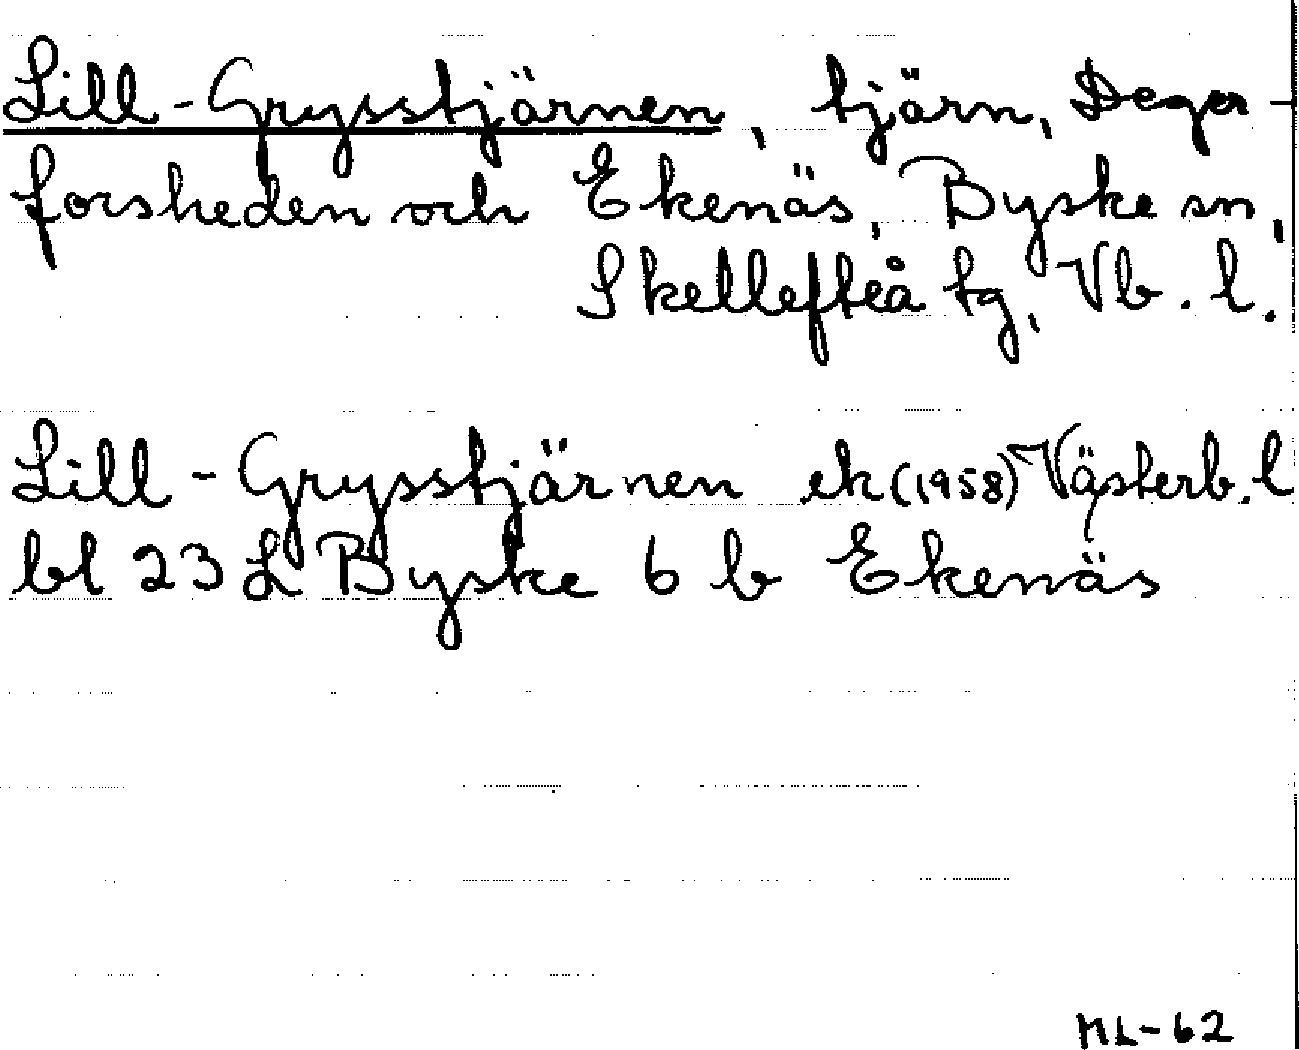 Lill-Grysstjärnen, tjärn, Deger-
forsheden och Ekenäs, Byske sn,
Skellefteå tg, Vb. l.
Lill-Grysstjärnen ek (1958) Västerb. l
bl 23 L Byske 6 b Ekenäs
ML-62